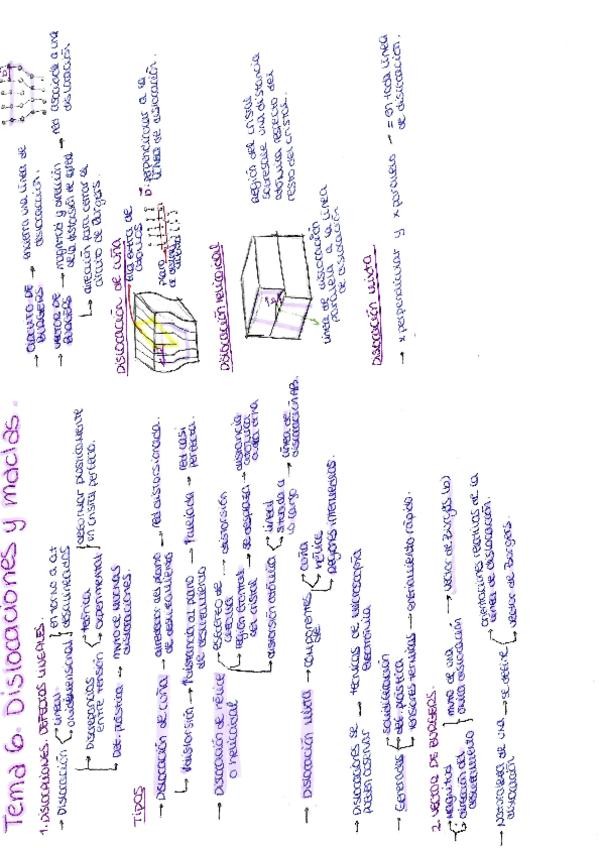 Tema 6. Dislocaciones y maclas.
1. DISLOCACIONES. DEFECTOS LINEALES.
→ Dislocación
lineal
unidimensional
en torno a at
desalineados
→ Discrepancias
entre tensión
teórica
experimental
deformar plásticamente
un cristal perfecto.
→ Def. plástica → mvto de muchas
dislocaciones.
Tipos
→ Dislocación de cuña → alrededor del plano
de deslizamiento → red distorsionada.
→ Paralelada → red casi
perfecta.
→ Dislocación de hélice
o helicoidal
esfuerzo de
cizalla → distorsión
región frontal
del cristal → se desplaza → distancia
atómica
distorsión atómica
lineal
→ línea de
dislocación AB.
→ Dislocación mixta → componentes
de
cuña
hélice
regiones intermedias.
→ Dislocaciones se
pueden observar → técnicas de microscopía
electrónica
→ Generadas
solidificación
def. plástica
tensiones térmicas → enfriamiento rápido.
2. VECTOR DE BURGERS.
→ Magnitud
dirección del
deslizamiento
mvto de una
única dislocación → vector de Burgers (b)
→ Naturaleza de una
dislocación → se define
orientaciones relativas de la
línea de dislocación.
vector de Burgers.
→ CIRCUITO DE
BURGERS → encierra una línea de
dislocación.
→ VECTOR DE
BURGERS → magnitud y dirección
de la distorsión de red → red asociada a una
dislocación
dirección para cerrar el
circuito de Burgers.
Dislocación de cuña
fila extra de
átomos
plano
b: perpendicular a la
línea de dislocación.
Dislocación helicoidal
región del cristal
sobresale una distancia
atómica respecto del
resto del cristal.
línea de dislocación
paralela a la línea
de dislocación
Dislocación mixta
→ x perpendicular y x paralelo → = en toda línea
de dislocación.